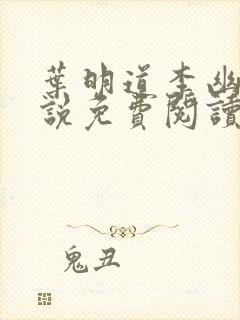 葉明道李幽
說免費閱讀
鬼丑